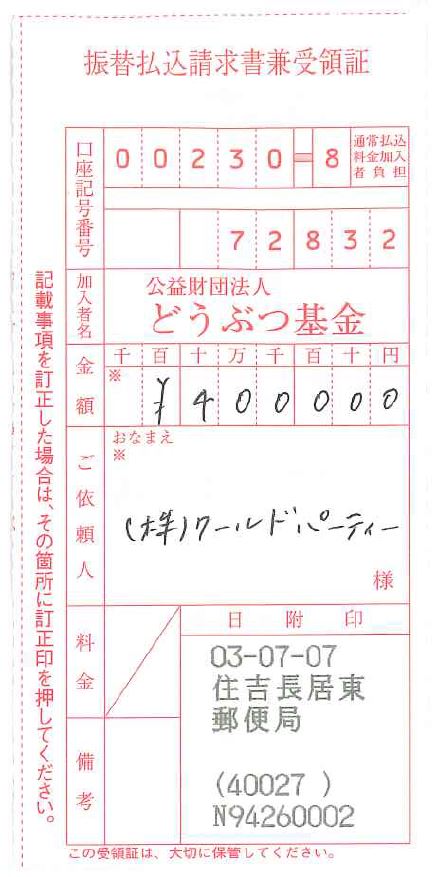 振替払込請求書兼受領証
口座記号番号
00230-8
通常払込
料金加入
者負担
72832
加入者名
公益財団法人
どうぶつ基金
金額
千百十万千百十円
※
¥400000
ご依頼人
おなまえ
※
(株)ワールドパーティー
様
料金
日附印
03-07-07
住吉長居東
郵便局
(40027 )
N94260002
備考
この受領証は、大切に保管してください。
記載事項を訂正した場合は、その箇所に訂正印を押してください。